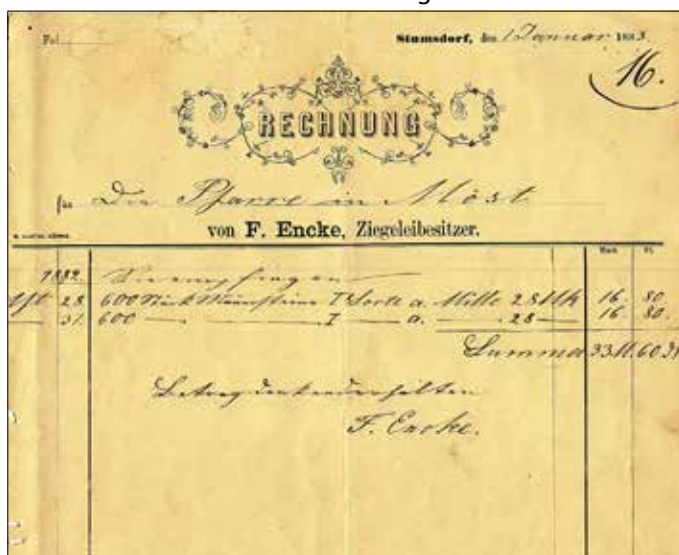 Fol.
Stumsdorf, den 1 Januar 1883.
16.
RECHNUNG
für Die Pfarre in Möst
von F. Encke, Ziegeleibesitzer.
Mark Pf.
1882. Sie empfingen
28 600 Stück Mauersteine I Sorte a. Mille 28 Mk 16. 80.
31. 600 — I a. — 28 — 16 80.
Summa 33 M. 60
Betrag dankend erhalten
F. Encke.